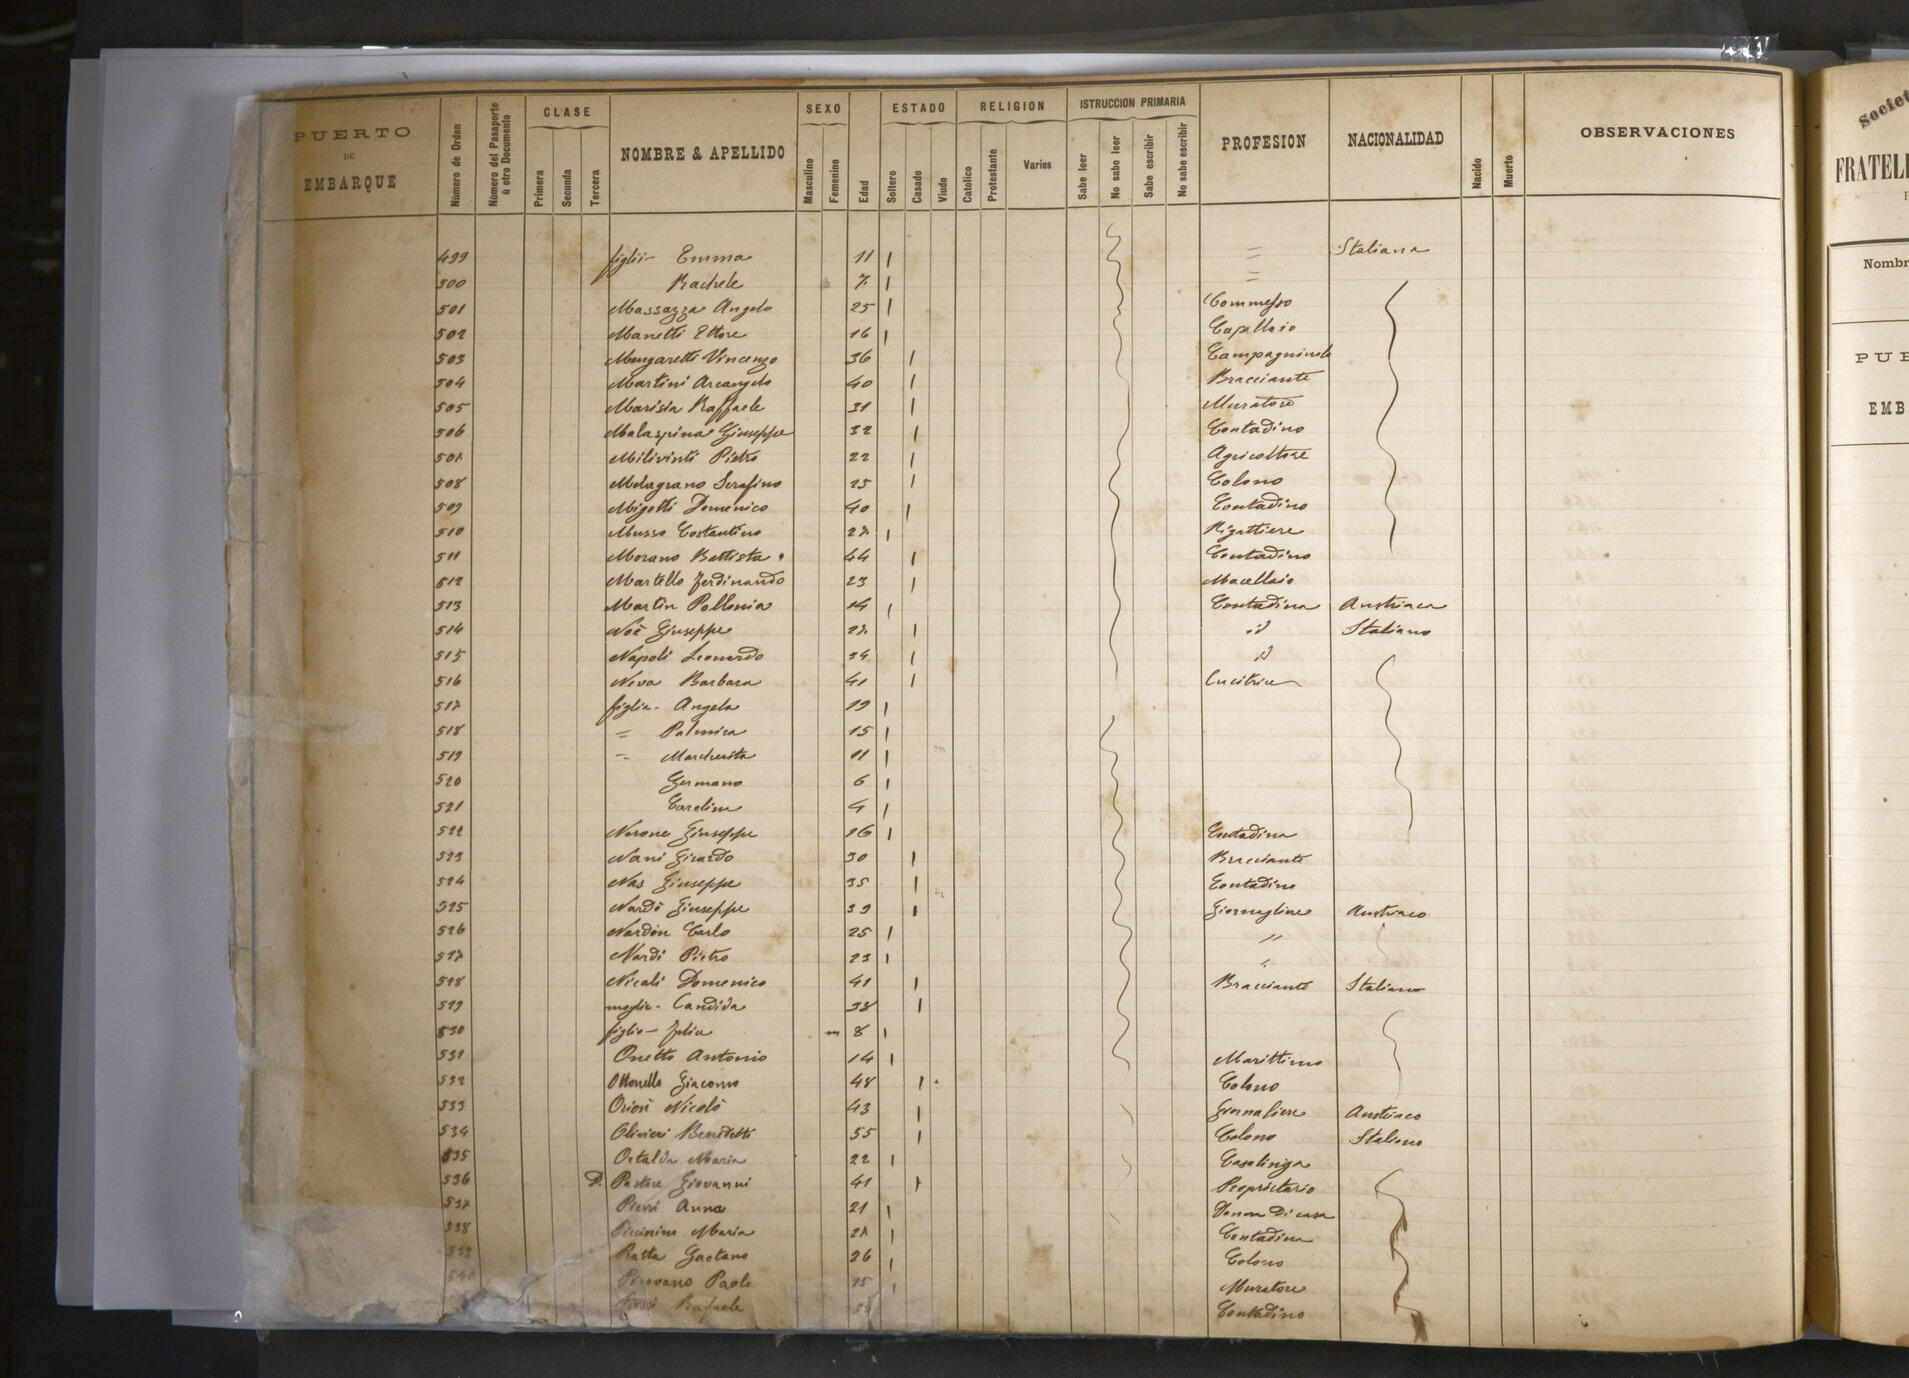 PUERTO DE EMBARQUE
Número de Orden
Número del Pasaporte u otro Documento
CLASE
Primera
Secunda
Tercera
NOMBRE & APELLIDO
SEXO
Masculino
Femenino
Edad
ESTADO
Soltero
Casado
Viudo
RELIGION
Catolico
Protestante
Varios
ISTRUCCION PRIMARIA
Sabe leer
No sabe leer
Sabe escribir
No sabe escribir
PROFESION
NACIONALIDAD
Nacido
Muerto
OBSERVACIONES
499 figlii - Emma 11 = Italiana
500 Rachele 7 =
501 Massazza Angelo 25 Commesso
502 Manetti Ettore 16 Capellaio
503 Mangaretti Vincenzo 36
504 Martini Arcangelo 40 Bracciante
505 Marisia Raffaele 31 Muratore
506 Malaspina Giuseppe 32 Contadino
507 Milivinti Pietro 22 Agricoltore
508 Melagrano Serafino 25 Colono
509 Migotti Domenico 40 Contadino
510 Musso Costantino 27 Rigattiere
511 Morano Battista 44 Contadino
512 Martello Ferdinando 23 Macellaio
513 Martin Pollonia 14 Contadina Austriaca
514 Noè Giuseppe 27 id Italiano
515 Napoli Leonardo 34 id
516 Neva Barbara 41 Cucitrice
517 figlia - Angela 19
518 = Palmira 15
519 = Margherita 11
520 Germano 6
521 Carolina 4
522 Nerone Giuseppe 16 Contadino
523 Nani Girardo 30 Bracciante
524 Nas Giuseppe 35 Contadino
525 Nardò Giuseppe 39 Giornagliere Austriaco
526 Nardon Carlo 25 "
527 Nardi Pietro 23 "
528 Nicali Domenico 41 Bracciante Italiano
529 moglie - Candida 38
530 figlio - m 8
531 Onetto Antonio 14 Marittimo
532 Ottonello Giacomo 48 Colono
533 Oriori Nicolò 43 Giornaliere Austriaco
534 Olivieri Benedetti 55 Colono Italiano
535 Ortalda Maria 22 Casalinga
536 D. Pastore Giovanni 41 Proprietario
537 Pierri Anna 21 Donna di casa
538 Piccinino Maria 27 Contadina
539 Rasta Gaetano 26 Colono
540 Pirovano Paolo 25 Muratore
Raffaele Contadino
Societ
FRATELL
Nombr
PUE
EMB